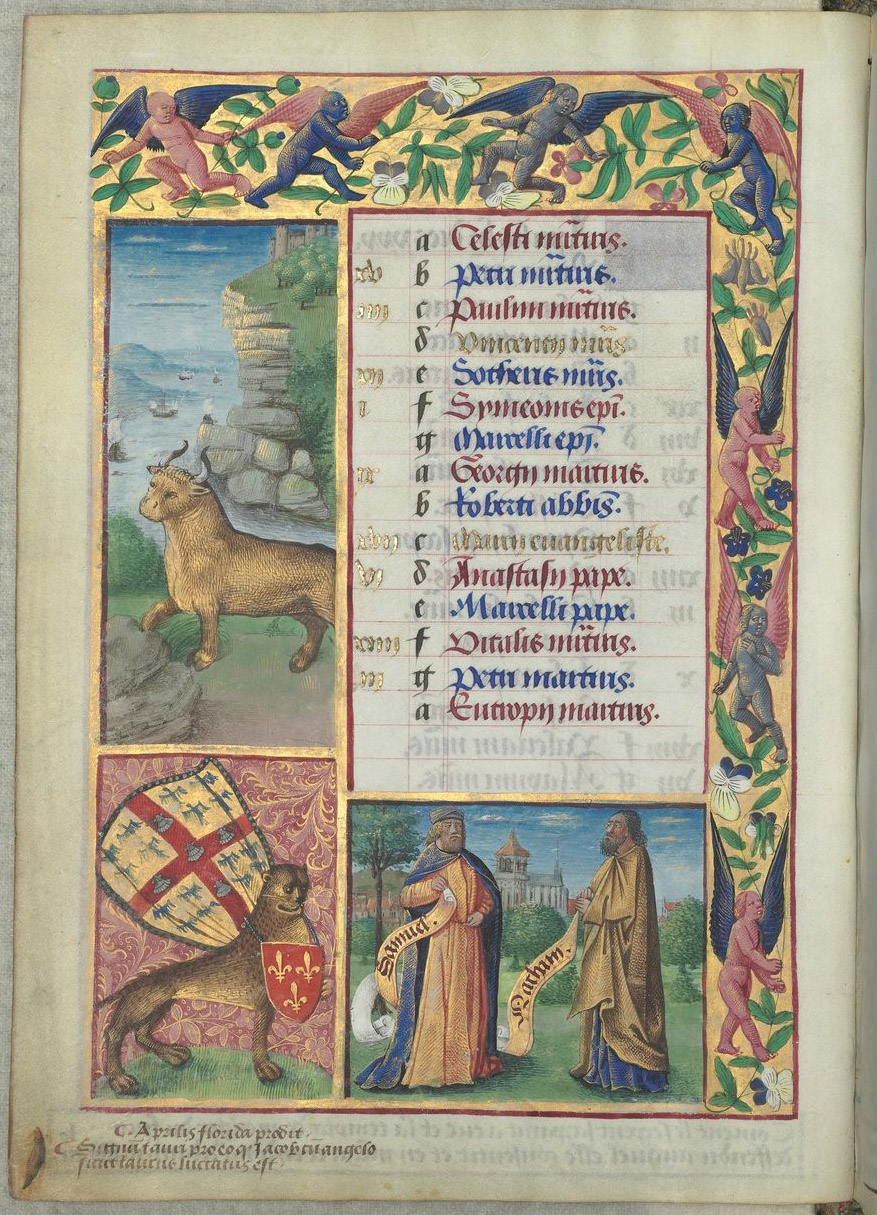 a Celesti mr̃tiris.
xv b Petri mr̃tiris.
iiij c Paulini mr̃tiris.
d Vincencij mr̃is
xij e Sotheris mr̃is.
i f Symeonis epĩ.
g Marcelli epĩ.
ix a Georgij martiris.
b Roberti abb̃is.
xvij c Marci euangeliste.
vj d Anastasij pape.
e Marcelli pape.
xiiij f Vitalis mr̃tiris.
iij g Petri martiris.
a Eutropij martiris.
Samuel.
Nathan.
Aprilis florida prodit.
Signũ tauri pro eo qz Jacob cũ angelo
sicut taurus luctatus est